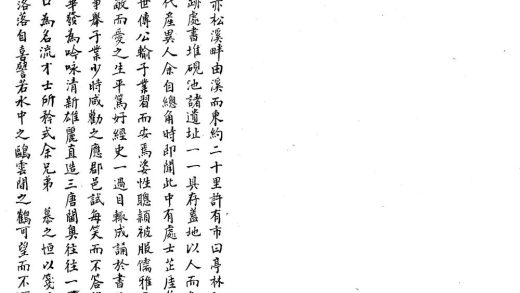 亦松溪畔由溪而東約二十里許有市曰亭林
跡處書堆硯池諸遺址一一具存蓋地以人而
代產異人余自總角時即聞此中有處士芷厓
世傳公輸子業習而安焉姿性聰穎被服儒雅
敬而愛之生平篤好經史一過目輒成誦於書
事舉子業少時咸勸之應郡邑試每笑而不答
華發為吟咏清新雄麗直造三唐閫奧往往一
口為名流才士所矜式余兄弟 慕之恒以箋
落落自喜譬若水中之鷗雲間之鶴可望而不